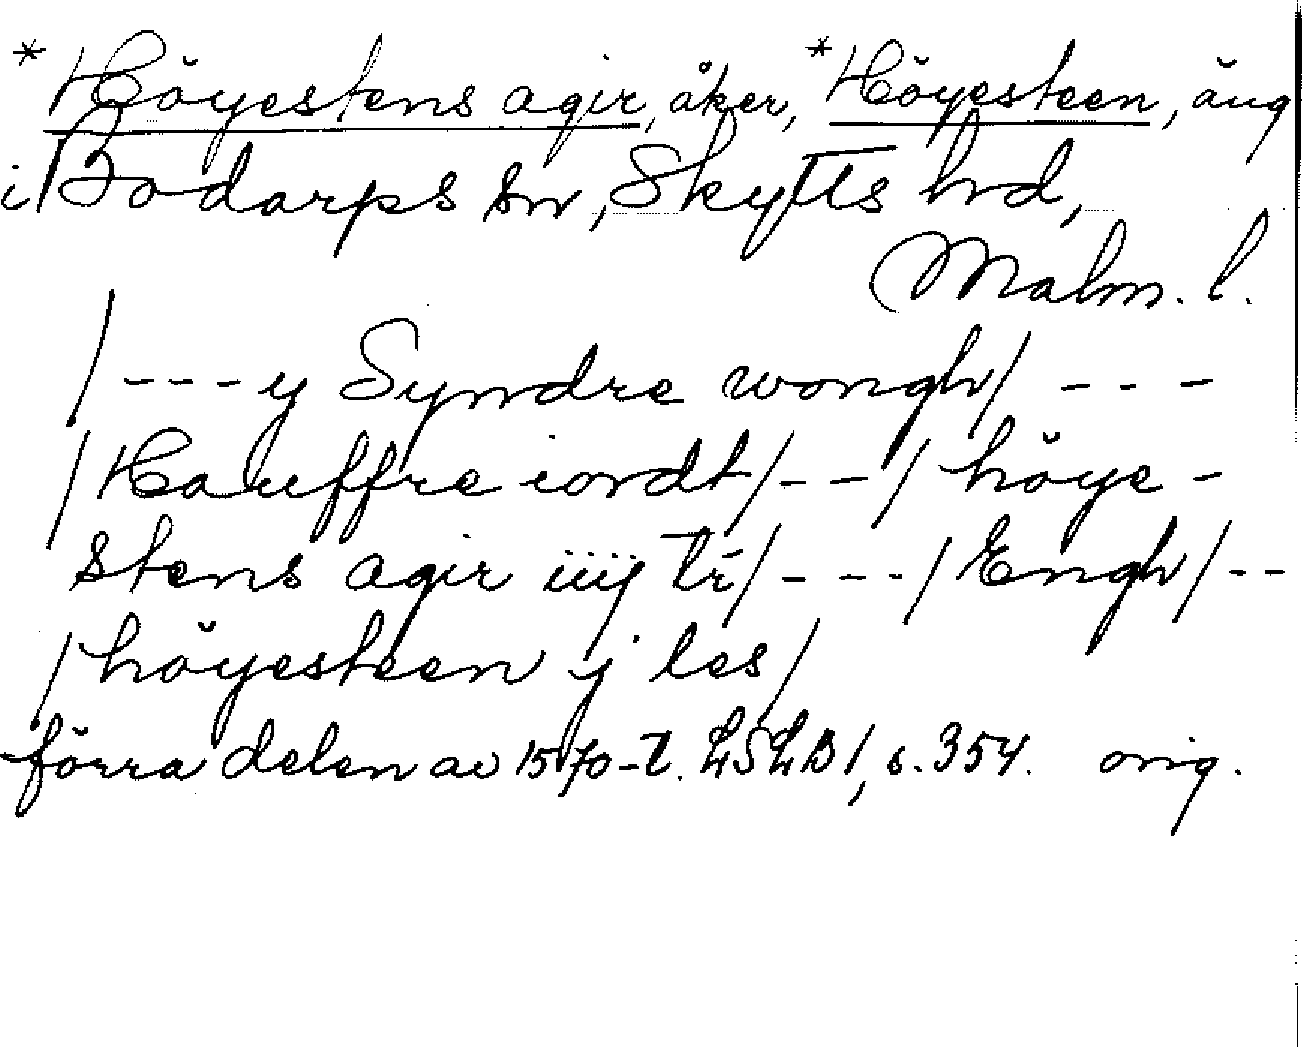 *Höyestens agir, åker, *Höyesteen, äng
i Bodarps sn, Skytts hd,
Malm. l.
/---y Syndre wongh/ ---
/Hauffre iordt/--/ höye-
stens agir iiij tr̄/---/Engh/--
/höyesteen j les/
förra delen av 1570-t. LSLB 1, s. 354. orig.